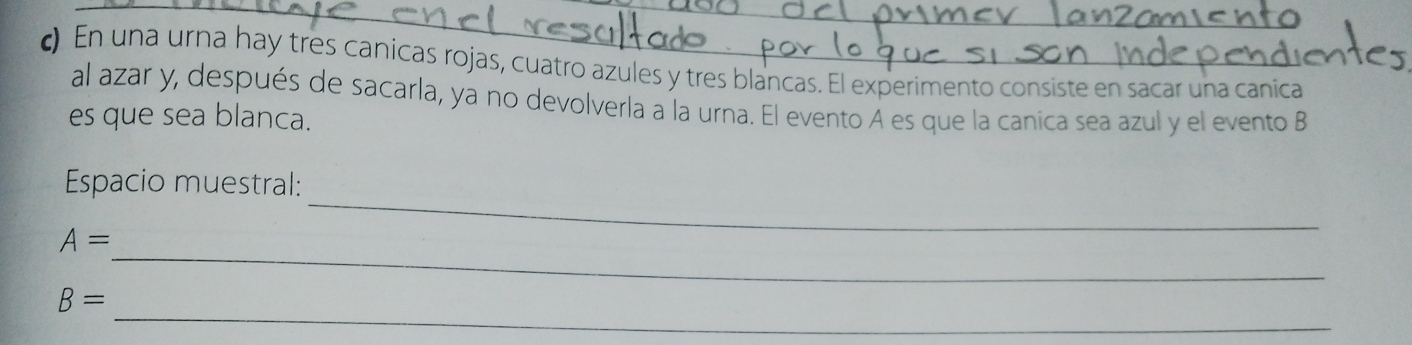 en el resultado. por lo que si son independientes.
del primer lanzamiento
c) En una urna hay tres canicas rojas, cuatro azules y tres blancas. El experimento consiste en sacar una canica
al azar y, después de sacarla, ya no devolverla a la urna. El evento A es que la canica sea azul y el evento B
es que sea blanca.
Espacio muestral:
A =
B =